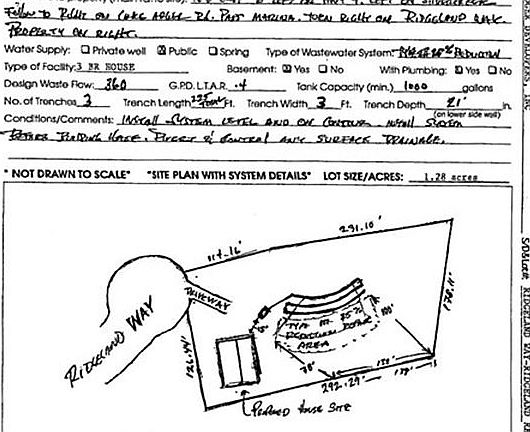 Follow to Right on Lake Argle Rd. Past Marina. Turn Right on Ridgeland Way.
Property on Right.
Water Supply: ☐ Private well ☒ Public ☐ Spring Type of Wastewater System: Reduction
Type of Facility: 3 BR HOUSE Basement: ☒ Yes ☐ No With Plumbing: ☒ Yes ☐ No
Design Waste Flow: 360 G.P.D. L.T.A.R. .4 Tank Capacity (min.) 1000 gallons
No. of Trenches 3 Trench Length 225 Ft. Trench Width 3 Ft. Trench Depth 21" in.
(on lower side wall)
Conditions/Comments: Install System Level and on Contour. Install System
Before Building House. Divert & Control any Surface Drainage.
* NOT DRAWN TO SCALE* *SITE PLAN WITH SYSTEM DETAILS* LOT SIZE/ACRES: 1.28 acres
114.16'
291.10'
178.11'
DRIVEWAY
RIDGELAND WAY
126.44'
TYPE III 25%
REDUCTION
AREA
292.29'
Proposed House Site
RIDGELAND